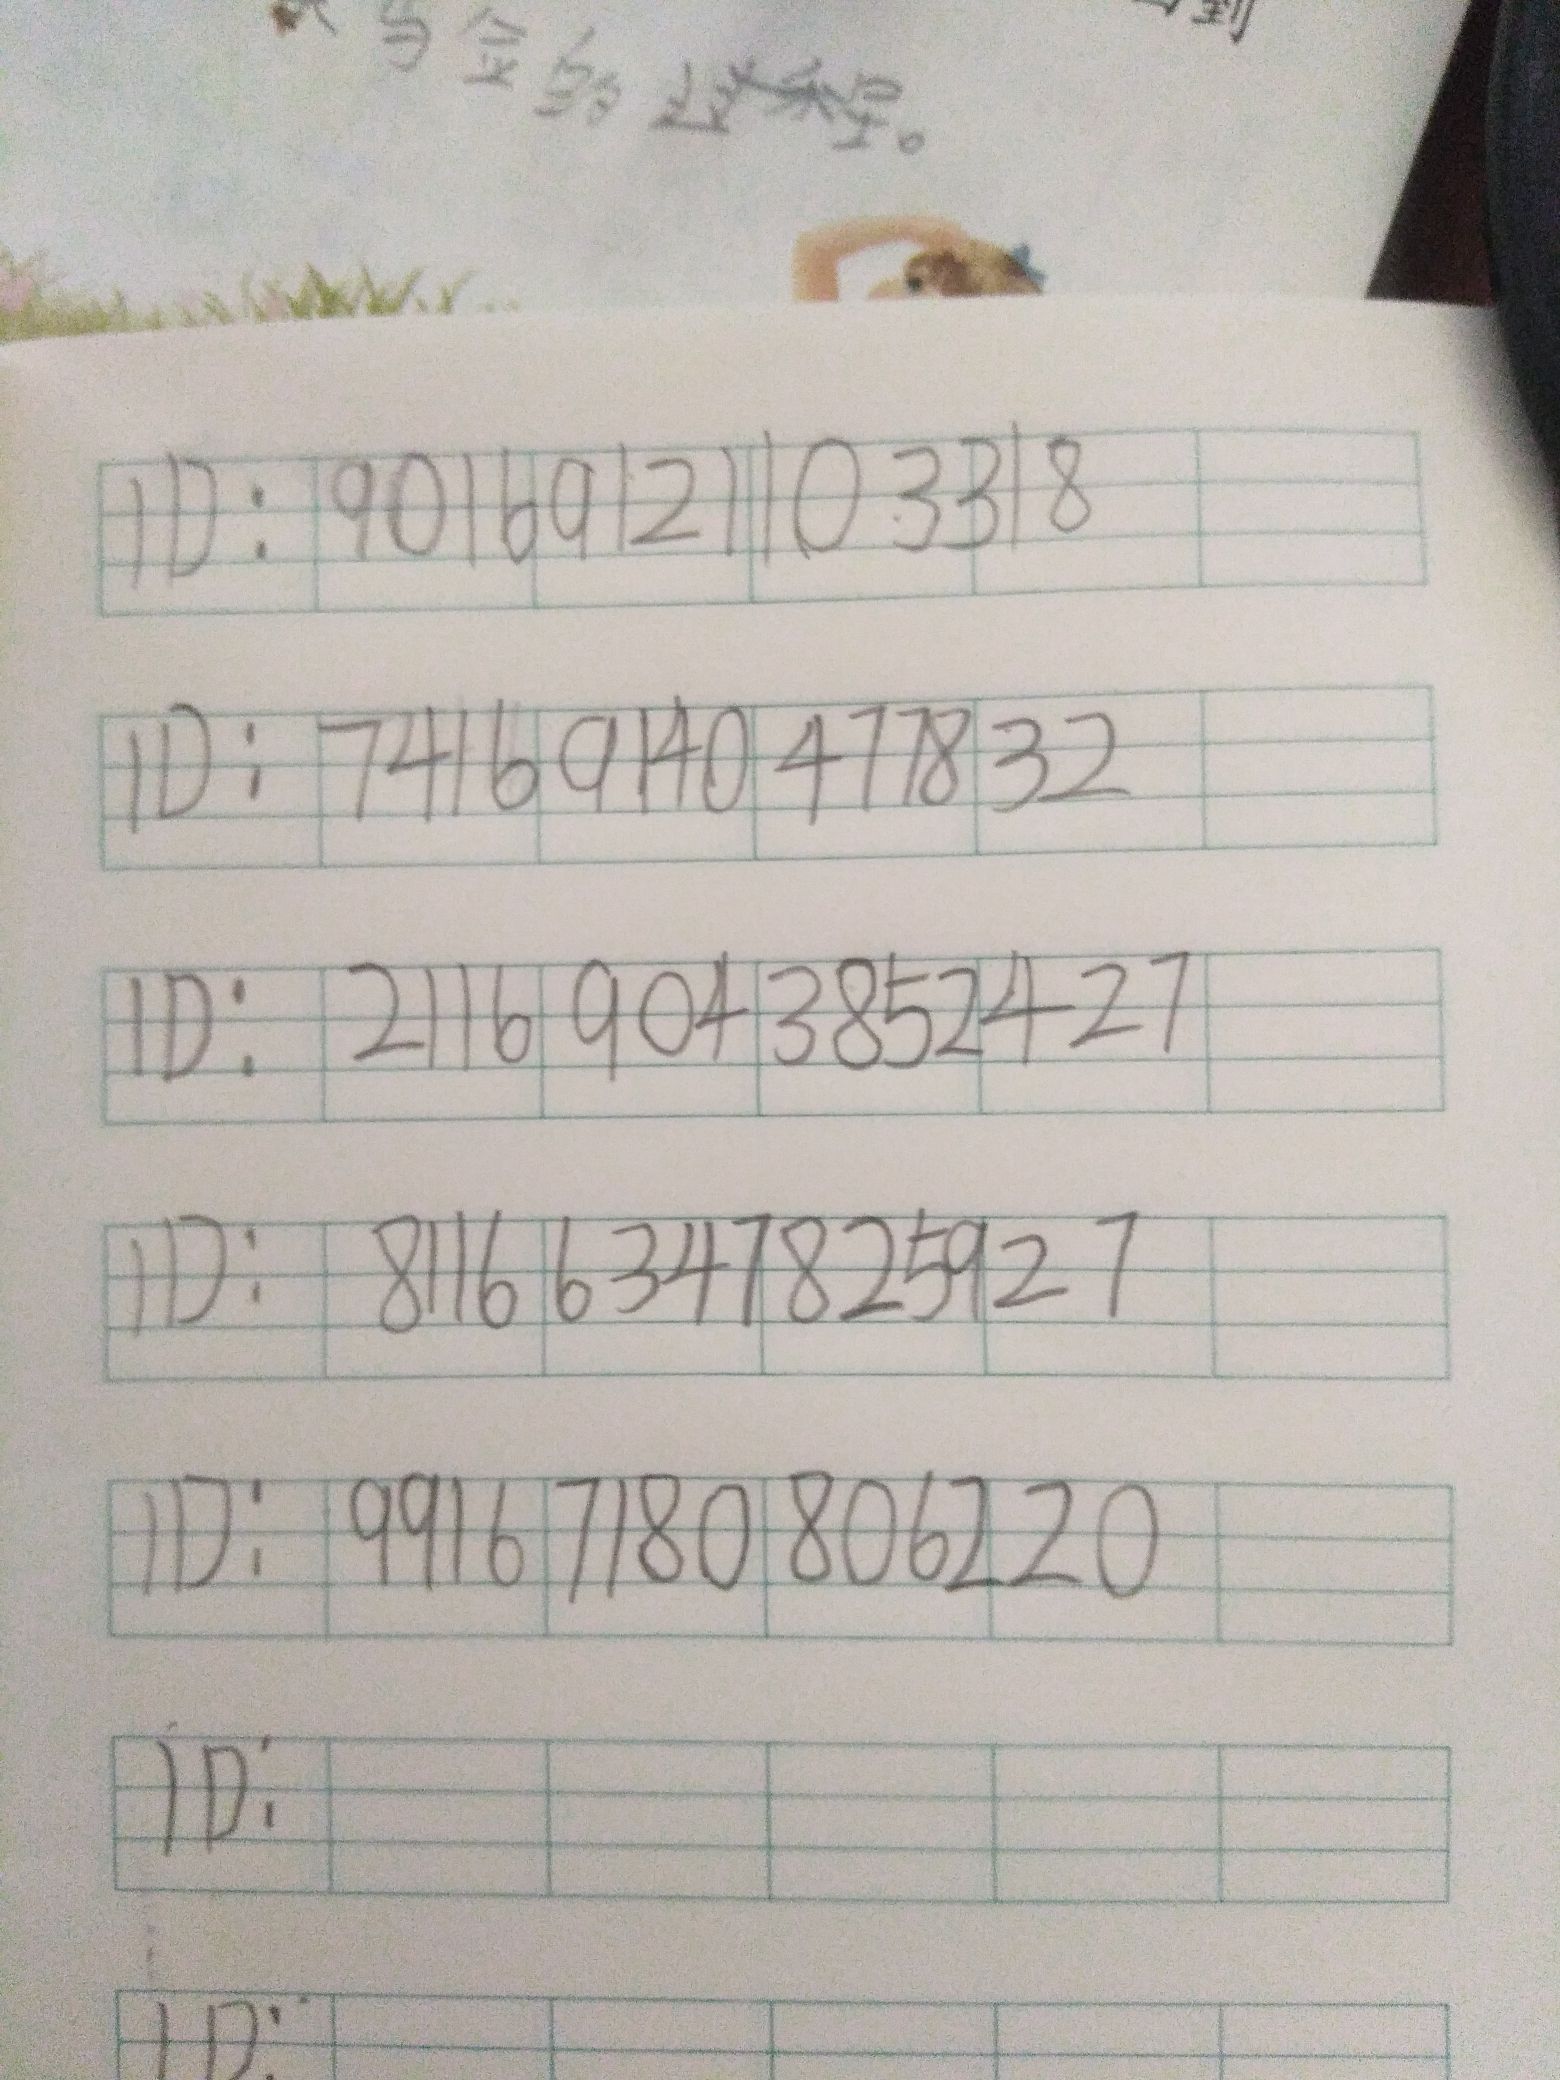 到
与金鱼
ID: 901691211103318
ID: 74169140477832
ID: 21169043852427
ID: 81166347825927
ID: 99167180806220
ID:
ID: